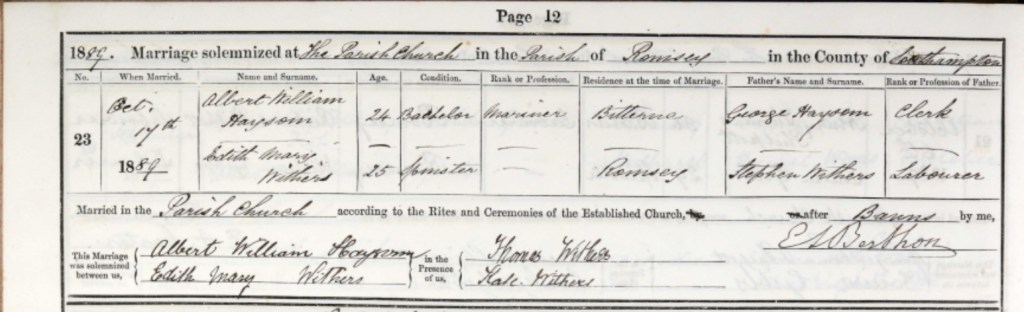 Page 12
1889. Marriage solemnized at The Parish Church in the Parish of Romsey in the County of Southampton
No. When Married. Name and Surname. Age. Condition. Rank or Profession. Residence at the time of Marriage. Father's Name and Surname. Rank or Profession of Father.
23 Oct. 17th 1889
Albert William Haysom 24 Bachelor Mariner Bitterne George Haysom Clerk
Edith Mary Withers 25 Spinster — Romsey Stephen Withers Labourer
Married in the Parish Church according to the Rites and Ceremonies of the Established Church, by or after Banns by me,
E L Berthon
This Marriage was solemnized between us, Albert William Haysom in the Presence of us, Withers
Edith Mary Withers Kate Withers